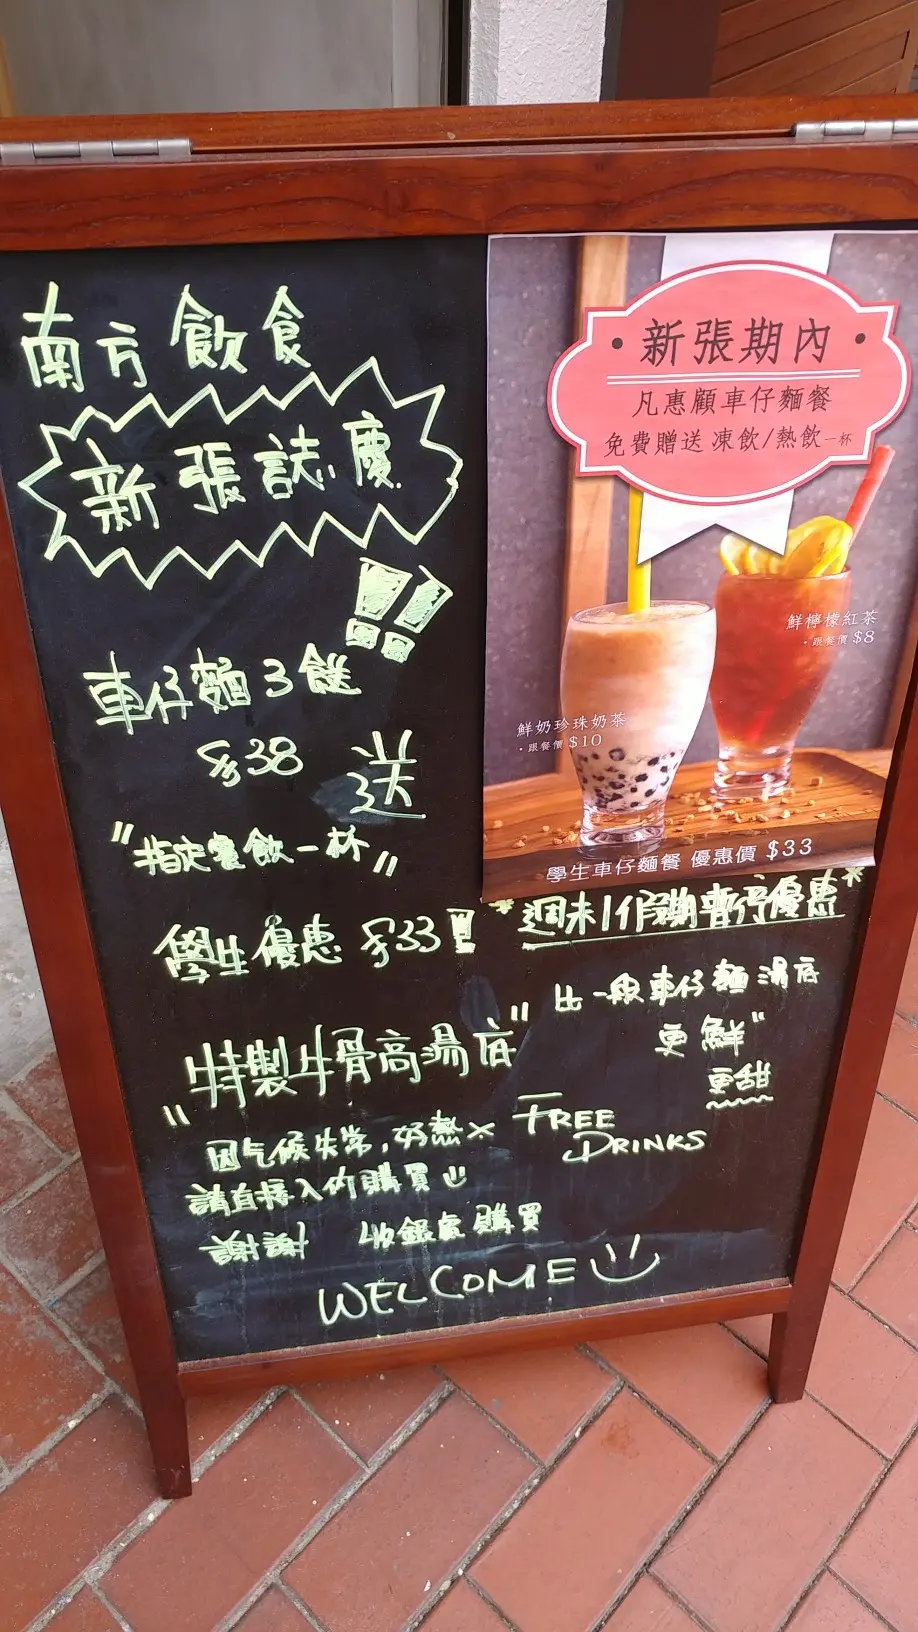 南方飲食
新張誌慶
!!
車仔麵3餸
$38 送
"指定餐飲一杯"
學生優惠 $33!
*週末/假期暫停優惠*
"特製牛骨高湯底"
比一般車仔麵湯底
更鮮"
更甜
因气候失常,好熱
請直接入內購買
謝謝 收銀處購買
FREE
DRINKS
WELCOME
·新張期內·
凡惠顧車仔麵餐
免費贈送 凍飲/熱飲一杯
鮮檸檬紅茶
·跟餐價 $8
鮮奶珍珠奶茶
·跟餐價 $10
學生車仔麵餐 優惠價 $33